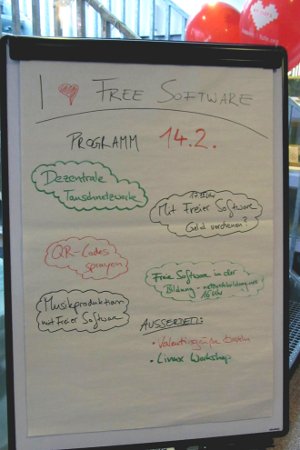 I ♥ FREE SOFTWARE
PROGRAMM 14.2.
Dezentrale
Tauschnetzwerke
17 Uhr
Mit Freier Software
Geld verdienen?
QR-Codes
sprayen
Free Software in der
Bildung -
16 Uhr
Musikproduktion
mit Freier Software
AUSSERDEM:
• Valentinsgrüße basteln
• Linux Workshop